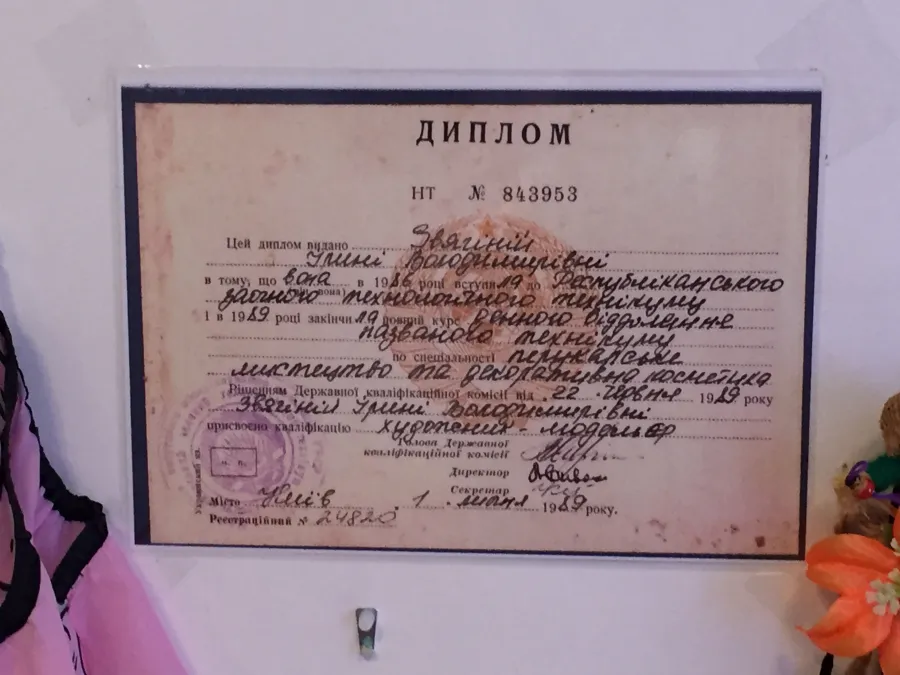 ДИПЛОМ
НТ № 843953
Цей диплом видано Звягіній
Ірині Володимирівні
в тому, що вона в 1986 році вступила до Республіканського
заочного технологічного технікуму
і в 1989 році закінчила повний курс денного відділення
названого технікуму
по спеціальності перукарське
мистецтво та декоративна косметика
Рішенням Державної кваліфікаційної комісії від 22 червня 1989 року
Звягіній Ірині Володимирівні
присвоєно кваліфікацію художник-модельєр
Голова Державної
кваліфікаційної комісії
Директор
Секретар
Місто Київ 1 липня 1989 року.
Реєстраційний № 24820